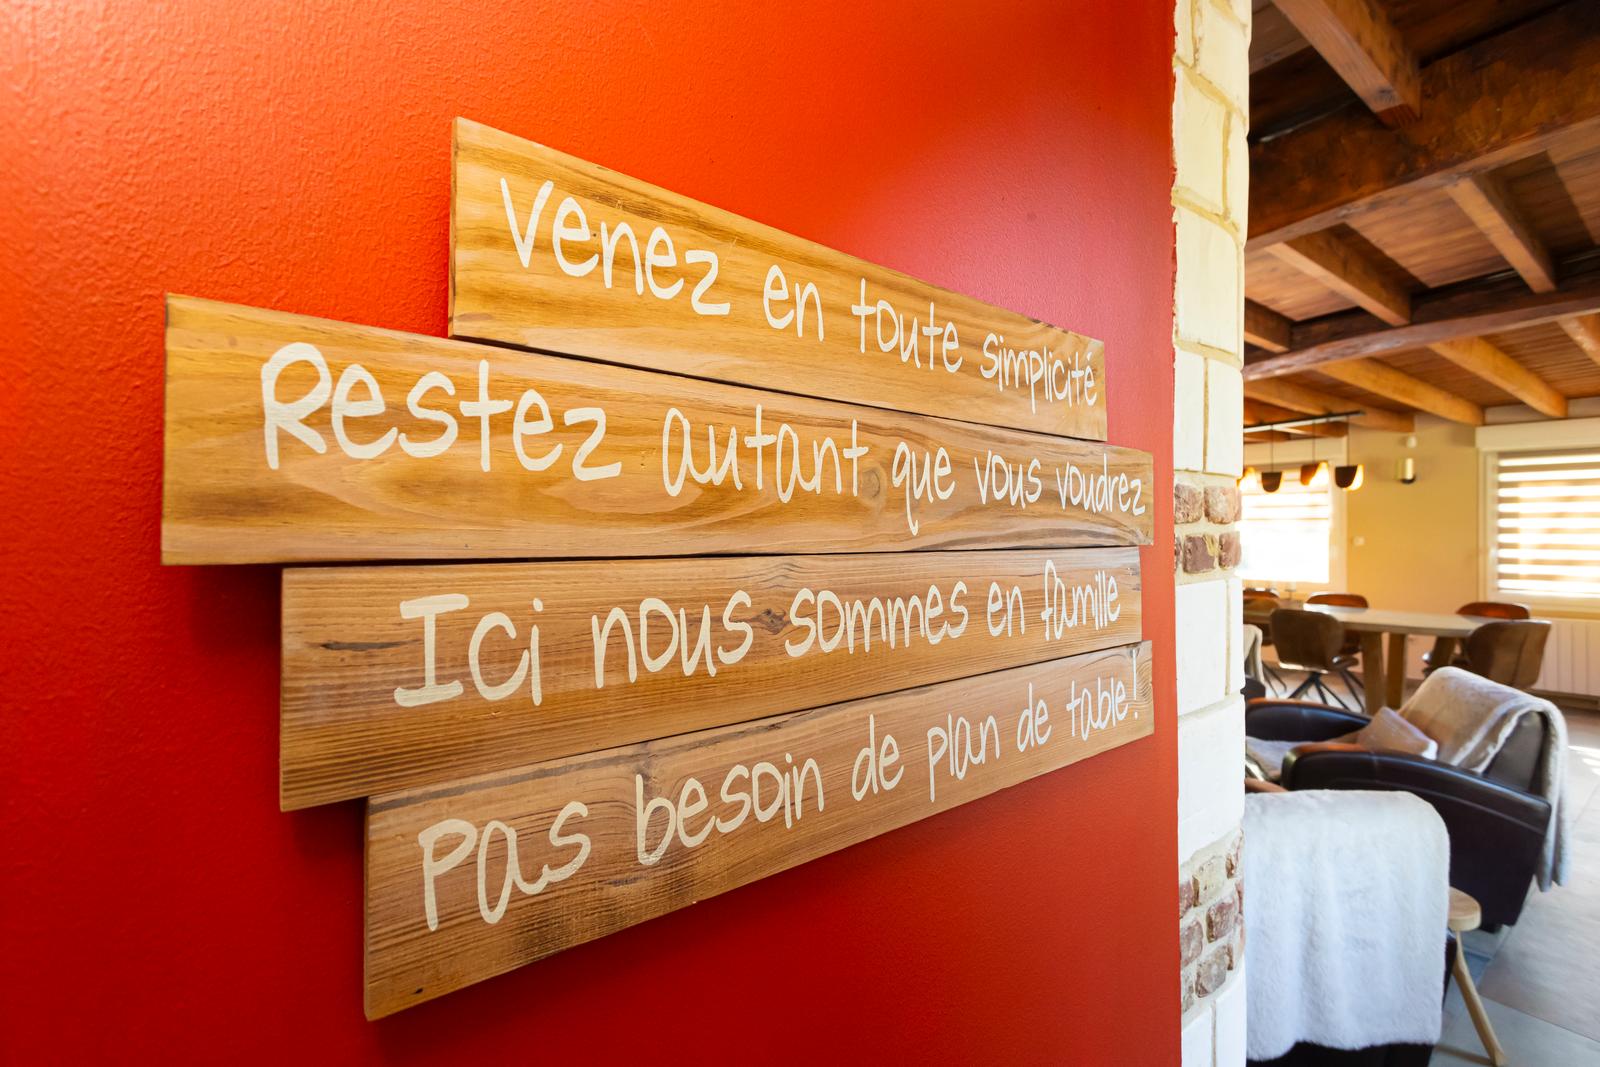 Venez en toute simplicité
Restez autant que vous voudrez
Ici nous sommes en famille
Pas besoin de plan de table!